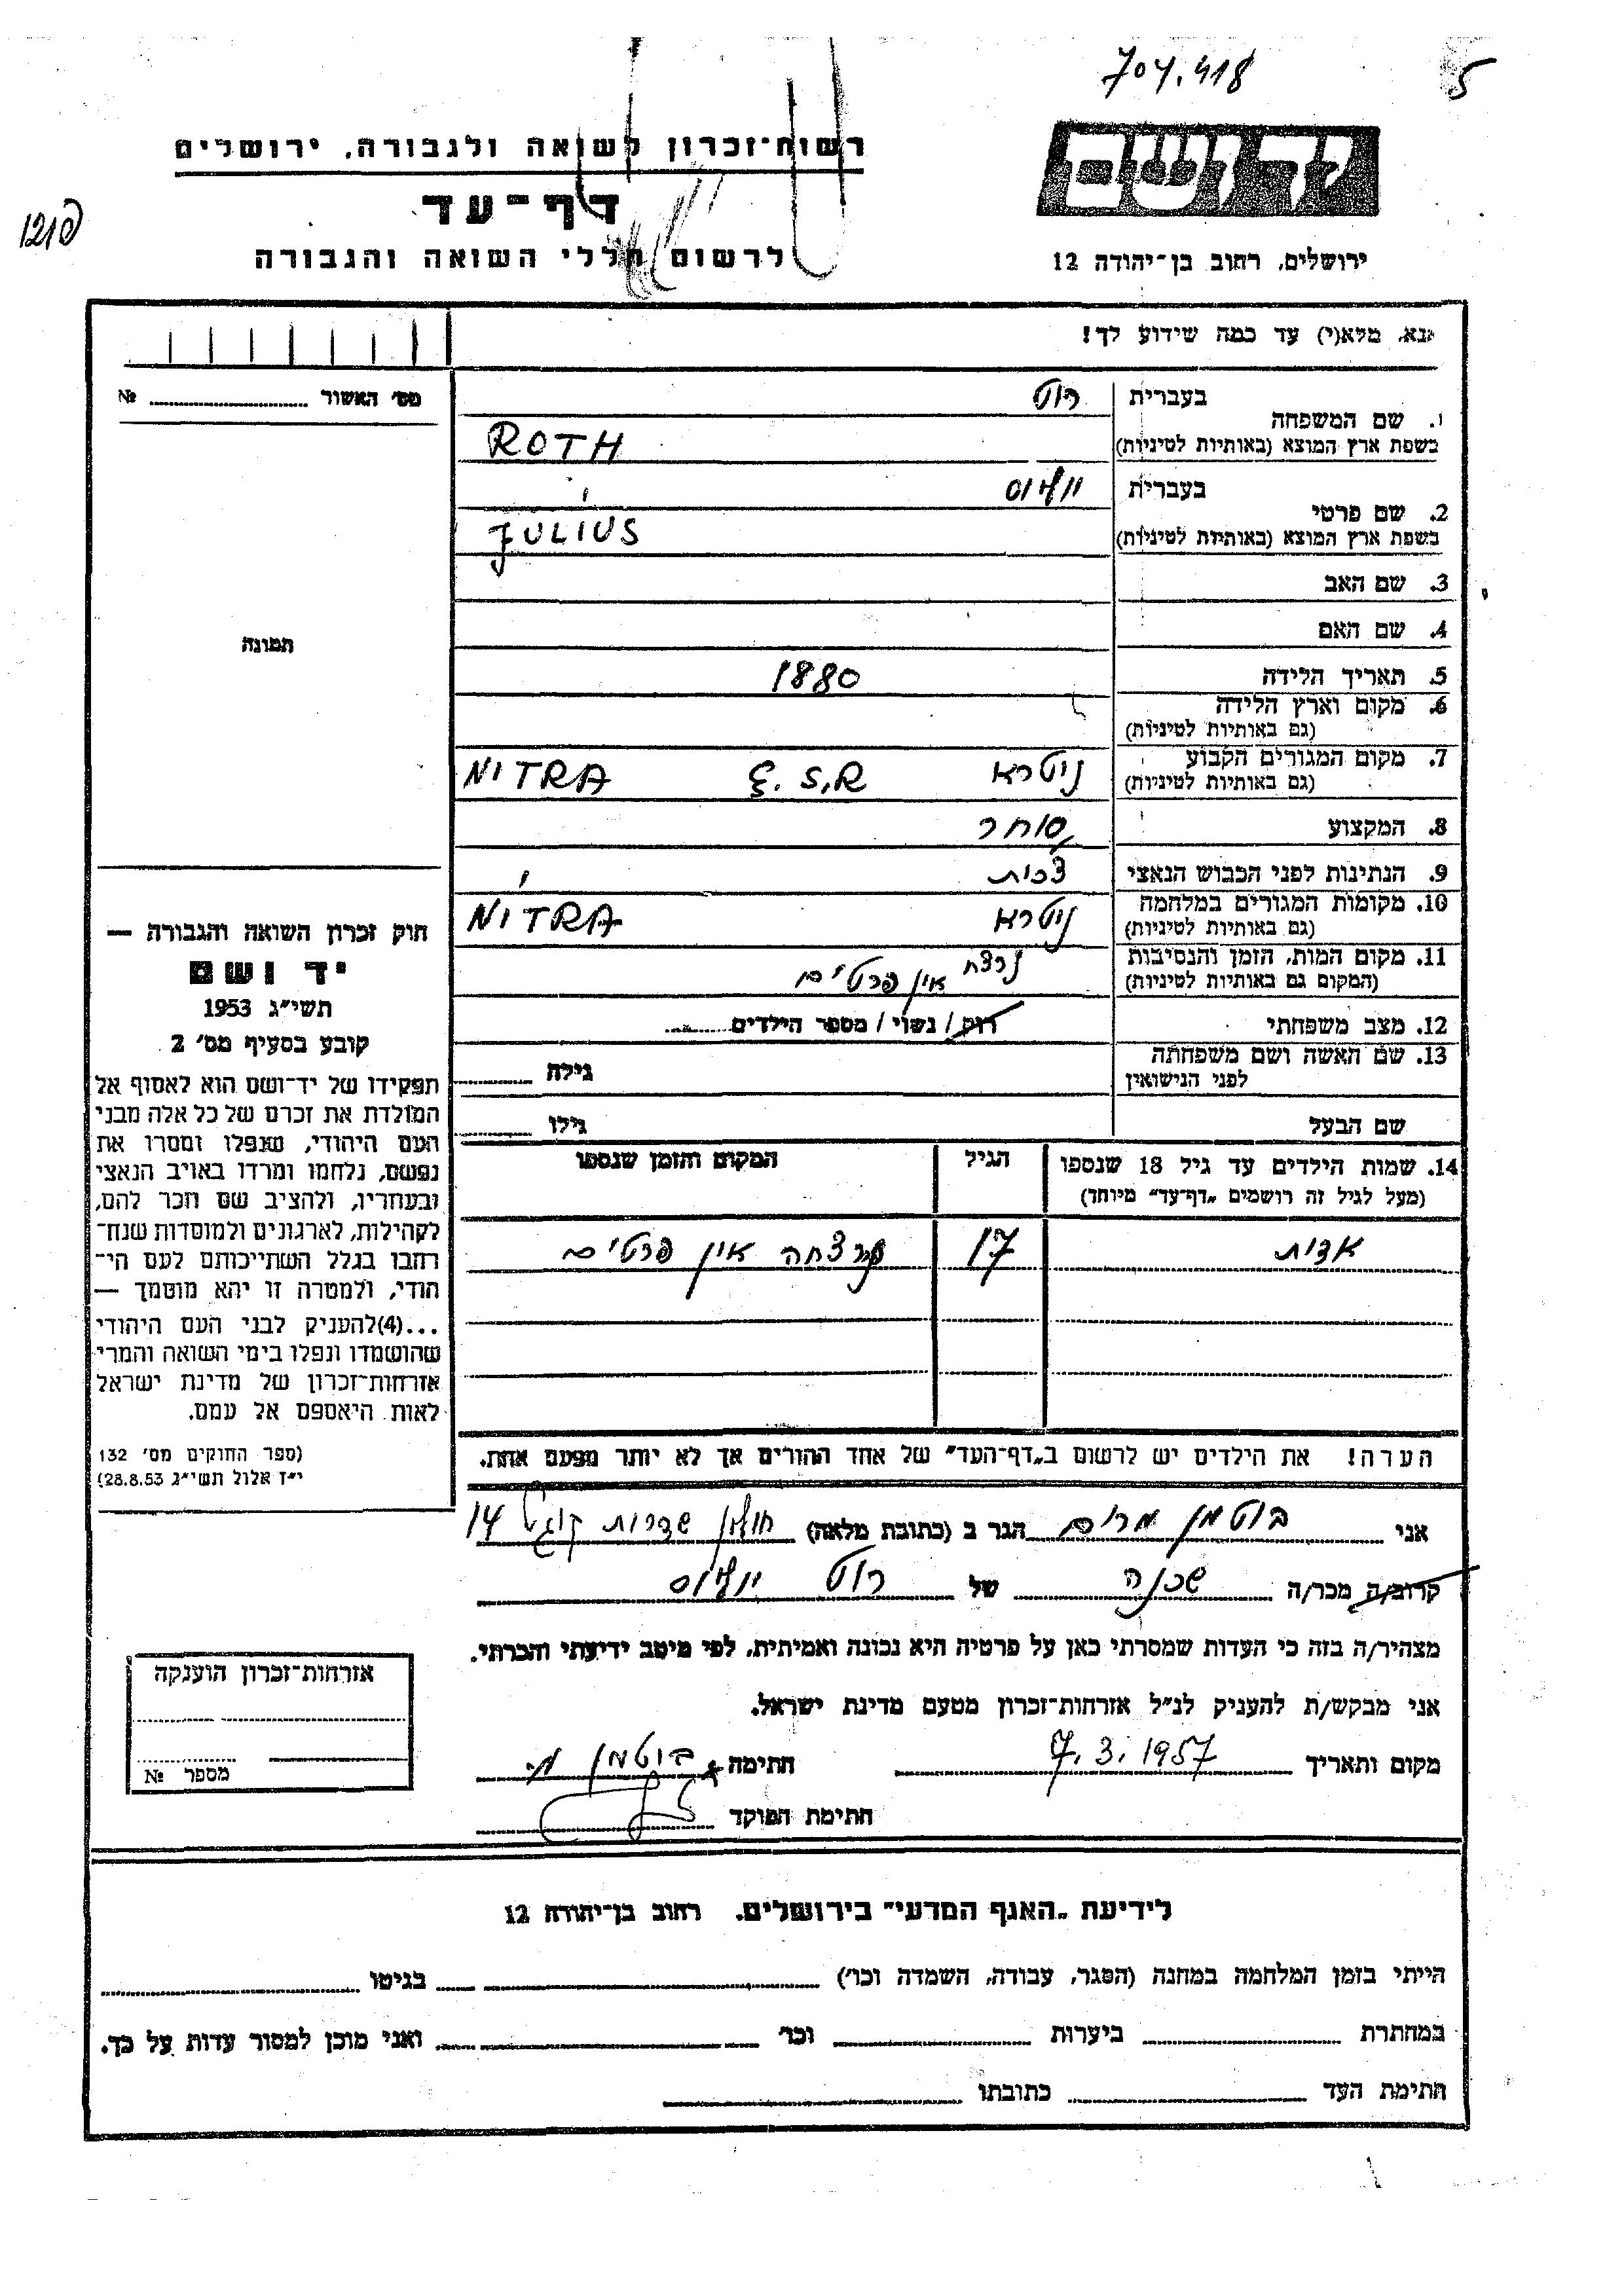 704.418
5
רשות־זכרון לשואה ולגבורה, ירושלים
דף־עד
לרשום חללי השואה והגבורה
ירושלים, רחוב בן־יהודה 12
נא, מלא(י) עד כמה שידוע לך!
מס' האשור № ........
1. שם המשפחה בעברית רוט
בשפת ארץ המוצא (באותיות לטיניות) ROTH
2. שם פרטי בעברית יוליוס
בשפת ארץ המוצא (באותיות לטיניות) JULIUS
3. שם האב
4. שם האם
5. תאריך הלידה 1880
6. מקום וארץ הלידה
(גם באותיות לטיניות)
7. מקום המגורים הקבוע ניטרא Č.S.R NITRA
(גם באותיות לטיניות)
8. המקצוע סוחר
9. הנתינות לפני הכבוש הנאצי צכית
10. מקומות המגורים במלחמה ניטרא NITRA
(גם באותיות לטיניות)
11. מקום המות, הזמן והנסיבות נרצח אין פרטים
(המקום גם באותיות לטיניות)
12. מצב משפחתי רוק / נשוי / מספר הילדים........
13. שם האשה ושם משפחתה
לפני הנישואין
גילה ........
שם הבעל גילו ........
14. שמות הילדים עד גיל 18 שנספו הגיל המקום והזמן שנספו
(מעל לגיל זה רושמים „דף־עד" מיוחד)
17 נרצחה אין פרטים
הערה! את הילדים יש לרשום ב„דף־העד" של אחד ההורים אך לא יותר מפעם אחת.
תמונה
חוק זכרון השואה והגבורה —
יד ושם
תשי"ג 1953
קובע בסעיף מס' 2
תפקידו של יד־ושם הוא לאסוף אל
המולדת את זכרם של כל אלה מבני
העם היהודי, שנפלו ומסרו את
נפשם, נלחמו ומרדו באויב הנאצי
ובעוזריו, ולהציב שם וזכר להם,
לקהילות, לארגונים ולמוסדות שנח־
רבו בגלל השתייכותם לעם הי־
הודי, ולמטרה זו יהא מוסמך —
...(4)להעניק לבני העם היהודי
שהושמדו ונפלו בימי השואה והמרי
אזרחות־זכרון של מדינת ישראל
לאות היאספם אל עמם.
(ספר החוקים מס' 132
י"ז אלול תשי"ג 28.8.53)
אני בוטמן מרים הגר ב (כתובת מלאה) חולון שדרות קוגל 14
קרוב/ה מכר/ה שכנה של רוט יוליוס
מצהיר/ה בזה כי העדות שמסרתי כאן על פרטיה היא נכונה ואמיתית, לפי מיטב ידיעתי והכרתי.
אני מבקש/ת להעניק לנ"ל אזרחות־זכרון מטעם מדינת ישראל.
מקום ותאריך 7.3.1957 חתימה בוטמן מ.
חתימת הפוקד
אזרחות־זכרון הוענקה
מספר №
לידיעת „האגף המדעי" בירושלים, רחוב בן־יהודה 12
הייתי בזמן המלחמה במחנה (הסגר, עבודה, השמדה וכו') ........ בגיטו ........
במחתרת ........ ביערות ........ וכו' ........ ואני מוכן למסור עדות על כך.
חתימת העד ........ כתובתו ........